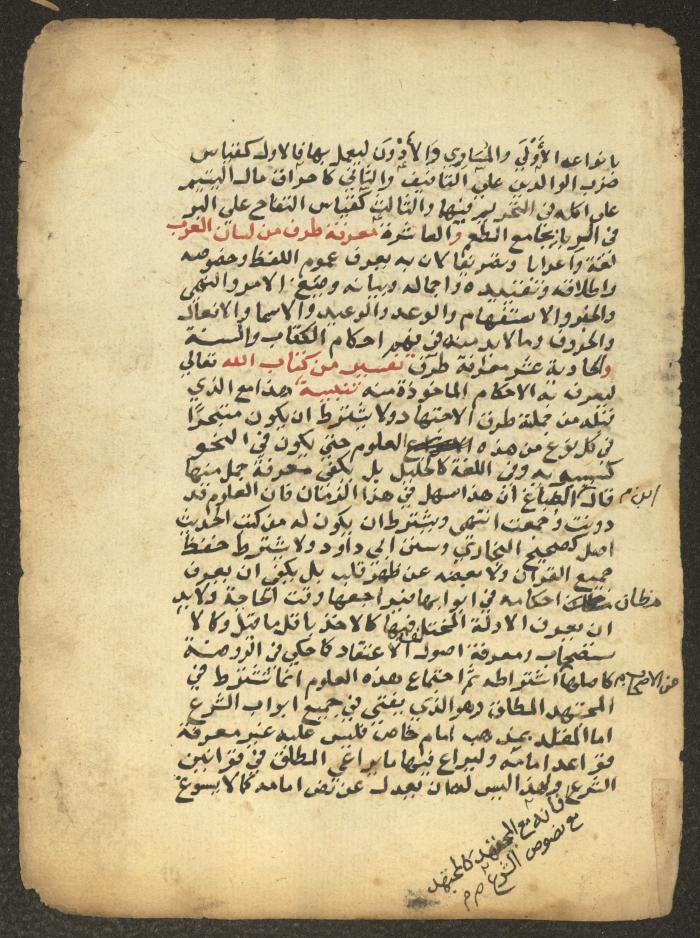 بانواعه الأَوْلَى والمساوي وَالأَدْوَن ليعمل بها فالاول كقياس
ضرب الوالدين على التافيف والثاني كاحراق مال اليتيم
على اكله في التحريم فيهما والثالث كقياس التفاح على البر
في الربا بجامع الطعم والعاشرة معرفة طرف من لسان العرب
لغة واعرابا وتصريفا لان به يعرف عموم اللفظ وخصوصه
واطلاقه وتقييده واجماله وبيانه وصيغ الامر والنهي
والخبر والاستفهام والوعد والوعيد والاسما والافعال
والحروف وما لابد منه في فهم احكام الكتاب والسنة
والحادية عشر معرفة طرف تفسير من كتاب الله تعالى
ليعرف به الاحكام الماخوذة منه تنبيه هذا مع الذي
قبله من جملة طرق الاجتهاد ولا يشترط ان يكون متبحرا
في كل نوع من هذه العلوم حتى يكون في النحو
كسيبويه وفي اللغة كالخليل بل يكفي معرفة جمل منها
قال ابن الصباغ ان هذا سهل في هذا الزمان فان العلوم قد
دونت وجمعت انتهى ويشترط ان يكون له من كتب الحديث
اصل كصحيح البخاري وسنن ابي داود ولا يشترط حفظ
جميع القران ولا بعضه عن ظهر قلب بل يكفي ان يعرف
مظان احكامه في ابوابها فيراجعها وقت الحاجة ولابد
ان يعرف الادلة المختلف فيها كالاخذ باقل ما قيل وكالا
ستصحاب ومعرفة اصول الاعتقاد كما حكي في الروضة
عن الاصحاب م كاصلها اشتراطه ثم اجتماع هذه العلوم انما تشترط في
المجتهد المطلق وهو الذي يفتي في جميع ابواب الشرع
اما المقلد بمذهب امام خاص فليس عليه غير معرفة
قواعد امامه وليراع فيها ما يراعي المطلق في قوانين
الشرع ولهذا ليس له ان يعدل عن نص امامه كما لا يسوغ
فانه مع المجتهد كالمجتهد
مع نصوص الشرع